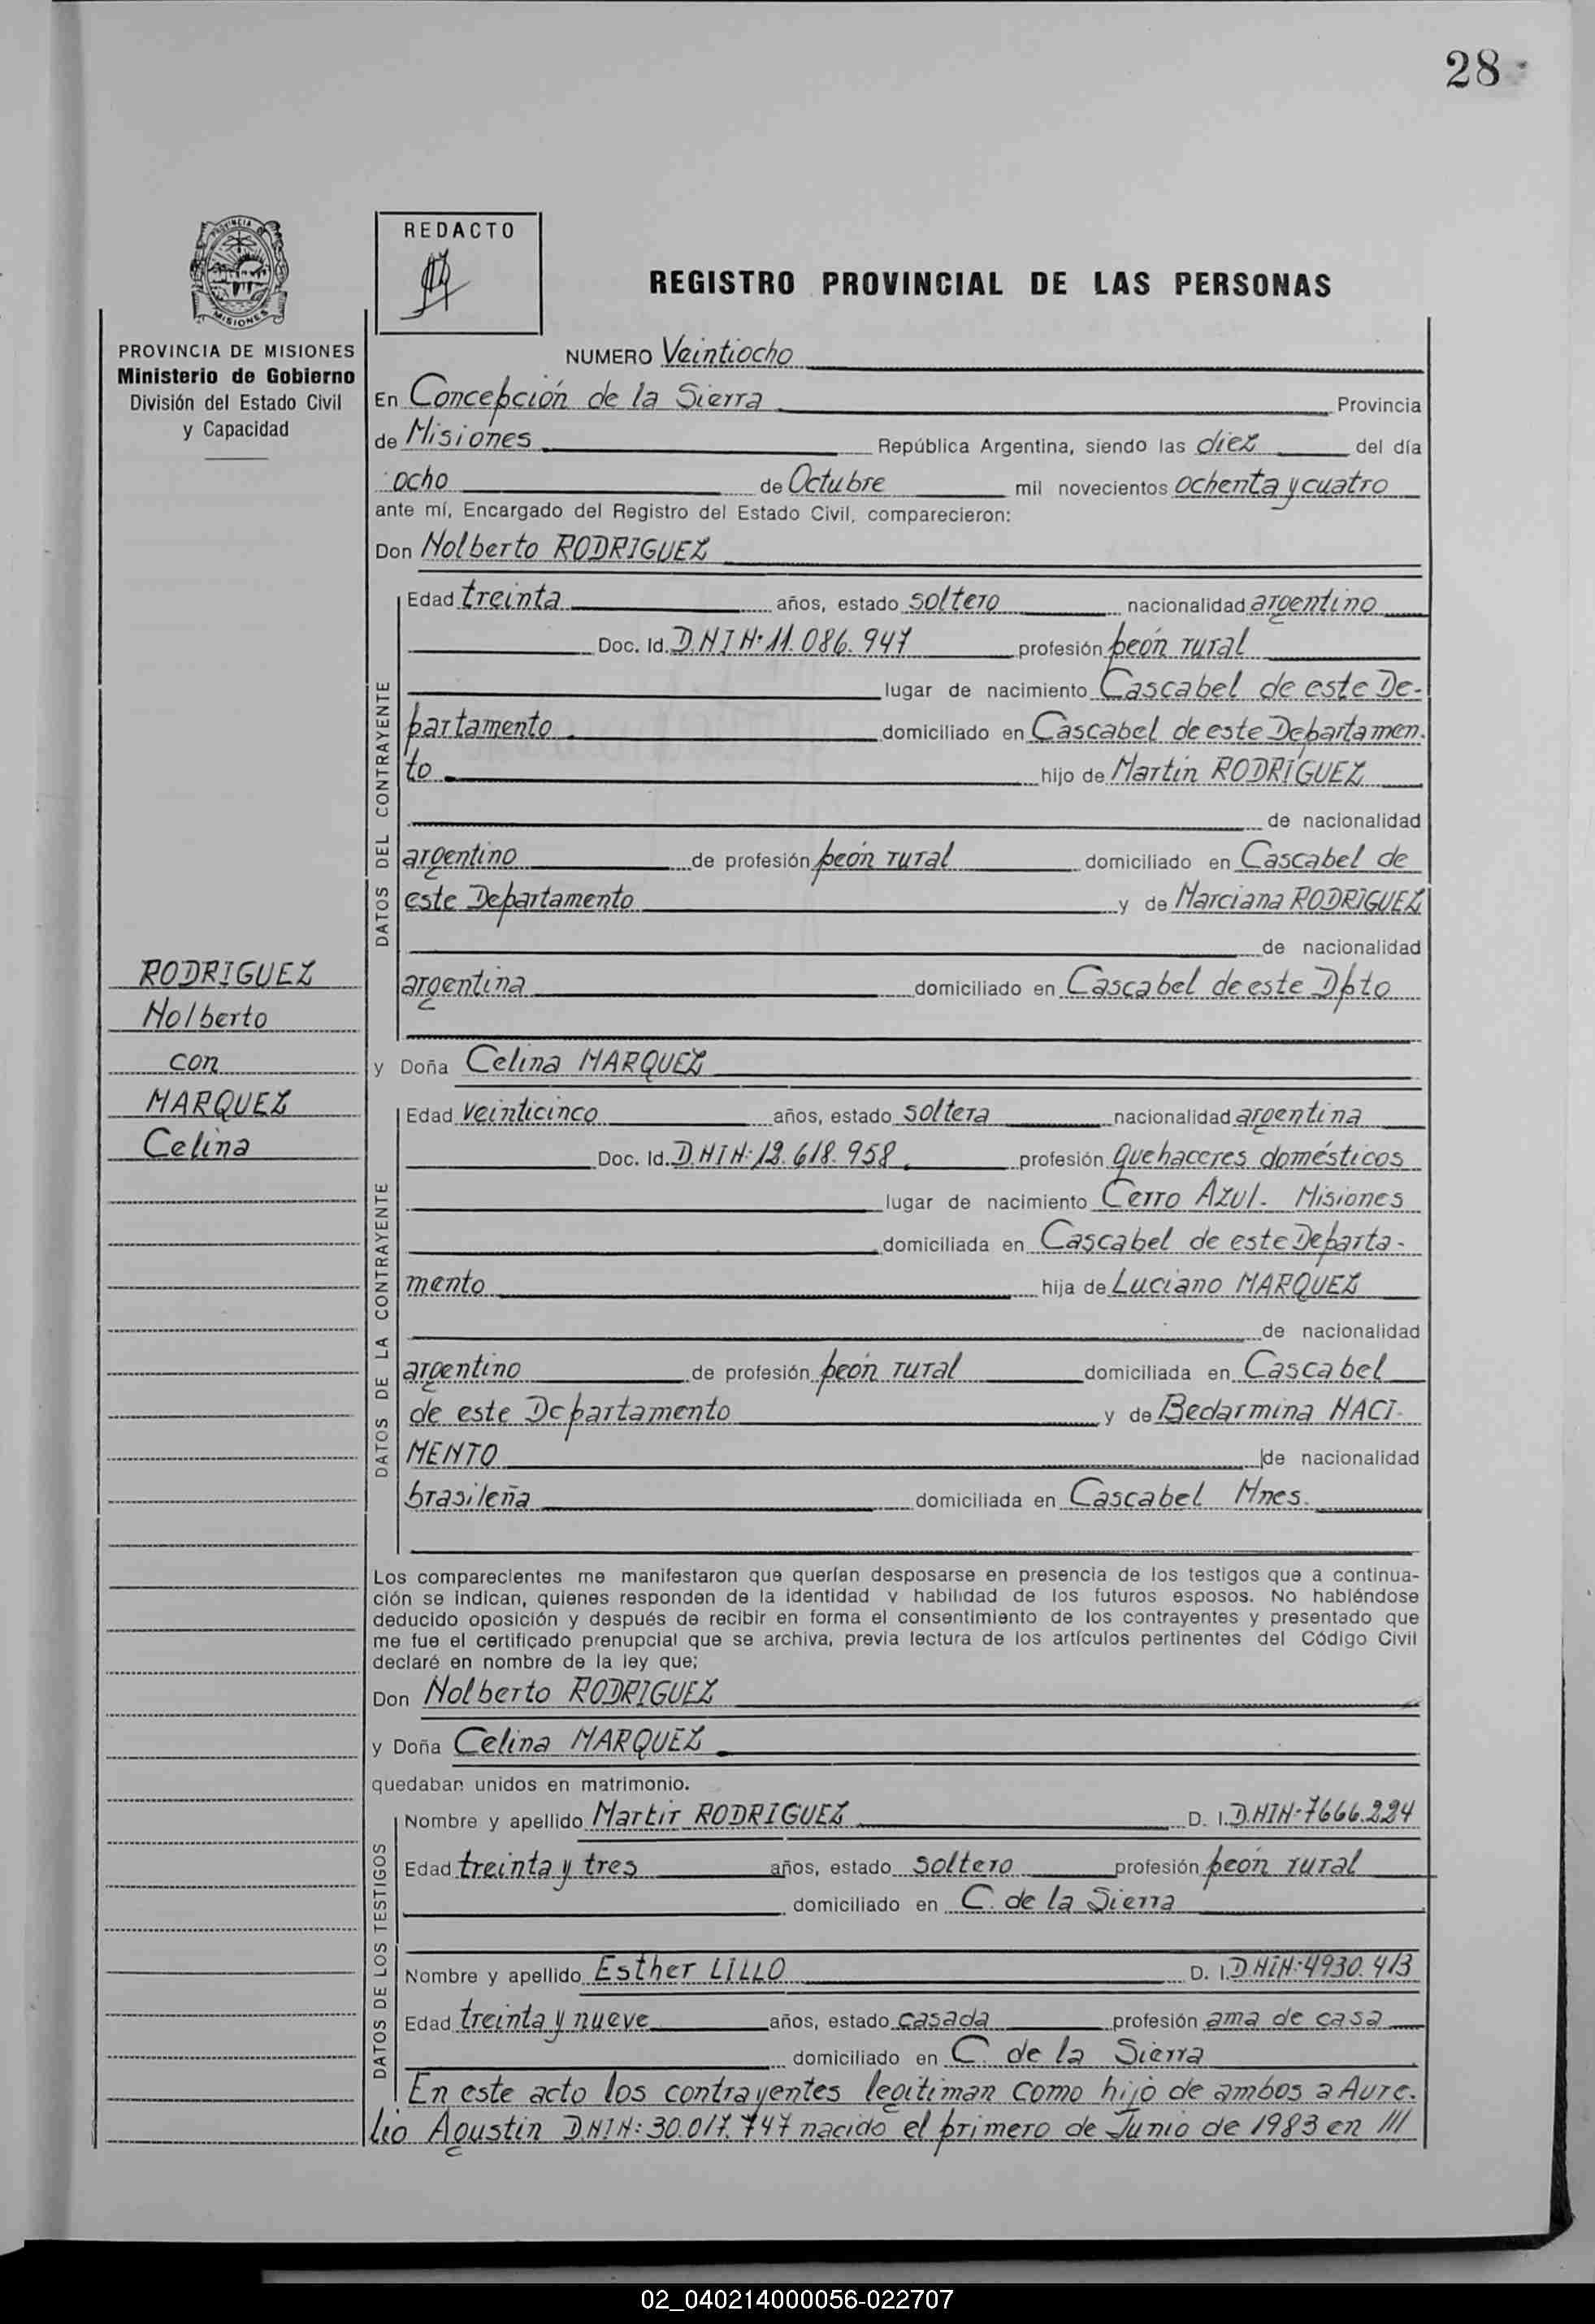 28
REDACTO
REGISTRO PROVINCIAL DE LAS PERSONAS
PROVINCIA
MISIONES
PROVINCIA DE MISIONES
Ministerio de Gobierno
División del Estado Civil
y Capacidad
RODRIGUEZ
Nolberto
con
MARQUEZ
Celina
NUMERO Veintiocho
En Concepción de la Sierra Provincia
de Misiones República Argentina, siendo las diez del día
ocho de Octubre mil novecientos ochenta y cuatro
ante mí, Encargado del Registro del Estado Civil, comparecieron:
Don Nolberto RODRIGUEZ
DATOS DEL CONTRAYENTE
Edad treinta años, estado soltero nacionalidad argentino
Doc. Id. D.N I N: 11.086.947 profesión peón rural
lugar de nacimiento Cascabel de este De-
partamento domiciliado en Cascabel de este Departamen.
to hijo de Martin RODRIGUEZ
de nacionalidad
argentino de profesión peón rural domiciliado en Cascabel de
este Departamento y de Marciana RODRIGUEZ
de nacionalidad
argentina domiciliado en Cascabel de este Dpto
y Doña Celina MARQUEZ
DATOS DE LA CONTRAYENTE
Edad veinticinco años, estado soltera nacionalidad argentina
Doc. Id. D.N I N: 12.618.958 profesión quehaceres domésticos
lugar de nacimiento Cerro Azul- Misiones
domiciliada en Cascabel de este Departa-
mento hija de Luciano MARQUEZ
de nacionalidad
argentino de profesión peón rural domiciliada en Cascabel
de este Departamento y de Bedarmina NACI-
MENTO de nacionalidad
brasileña domiciliada en Cascabel Mnes.
Los comparecientes me manifestaron que querían desposarse en presencia de los testigos que a continua-
ción se indican, quienes responden de la identidad y habilidad de los futuros esposos. No habiéndose
deducido oposición y después de recibir en forma el consentimiento de los contrayentes y presentado que
me fue el certificado prenupcial que se archiva, previa lectura de los artículos pertinentes del Código Civil
declaré en nombre de la ley que;
Don Nolberto RODRIGUEZ
y Doña Celina MARQUEZ
quedaban unidos en matrimonio.
DATOS DE LOS TESTIGOS
Nombre y apellido Martir RODRIGUEZ D. I. D.NIN-7666.224
Edad treinta y tres años, estado soltero profesión peón rural
domiciliado en C. de la Sierra
Nombre y apellido Esther LILLO D. I. D NIN:4930.413
Edad treinta y nueve años, estado casada profesión ama de casa
domiciliado en C. de la Sierra
En este acto los contrayentes legitiman como hijo de ambos a Aure.
lio Agustin D.N I N: 30.017.747 nacido el primero de Junio de 1983 en ///
02_040214000056-022707